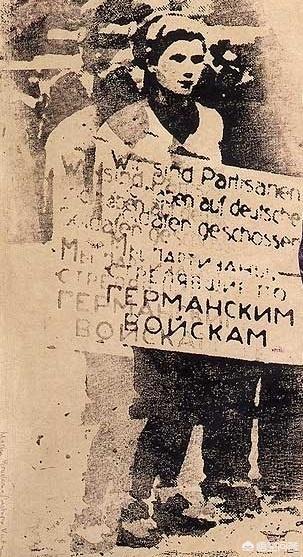 Wir sind Partisanen
haben auf deutsche
Soldaten geschossen
МЫ ПАРТИЗАНЫ
СТРЕЛЯВШИЕ ПО
ГЕРМАНСКИМ
ВОЙСКАМ